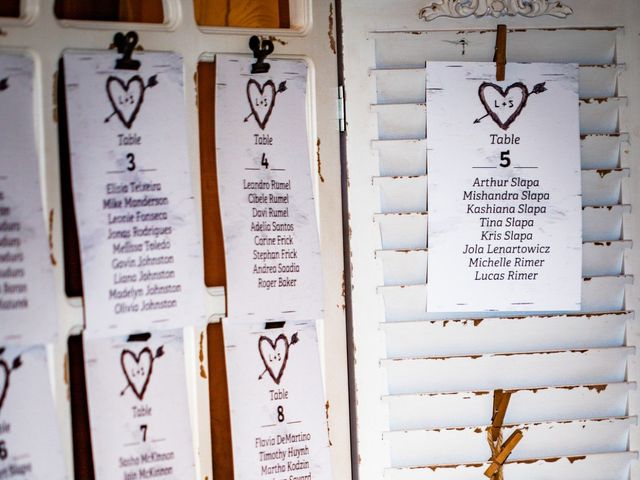 L + S
Table
3
Elisia Teixeira
Mike Manderson
Leonie Fonseca
Jonas Rodrigues
Melissa Toledo
Gavin Johnston
Liana Johnston
Madelyn Johnston
Olivia Johnston
L + S
Table
4
Leandro Rumel
Cibele Rumel
Davi Rumel
Adelia Santos
Corine Frick
Stephan Frick
Andrea Saadia
Roger Baker
L + S
Table
5
Arthur Slapa
Mishandra Slapa
Kashiana Slapa
Tina Slapa
Kris Slapa
Jola Lenartowicz
Michelle Rimer
Lucas Rimer
6
L + S
Table
7
Sasha McKinnon
Iain McKinnon
L + S
Table
8
Flavia DeMartino
Timothy Huynh
Martha Kodzin